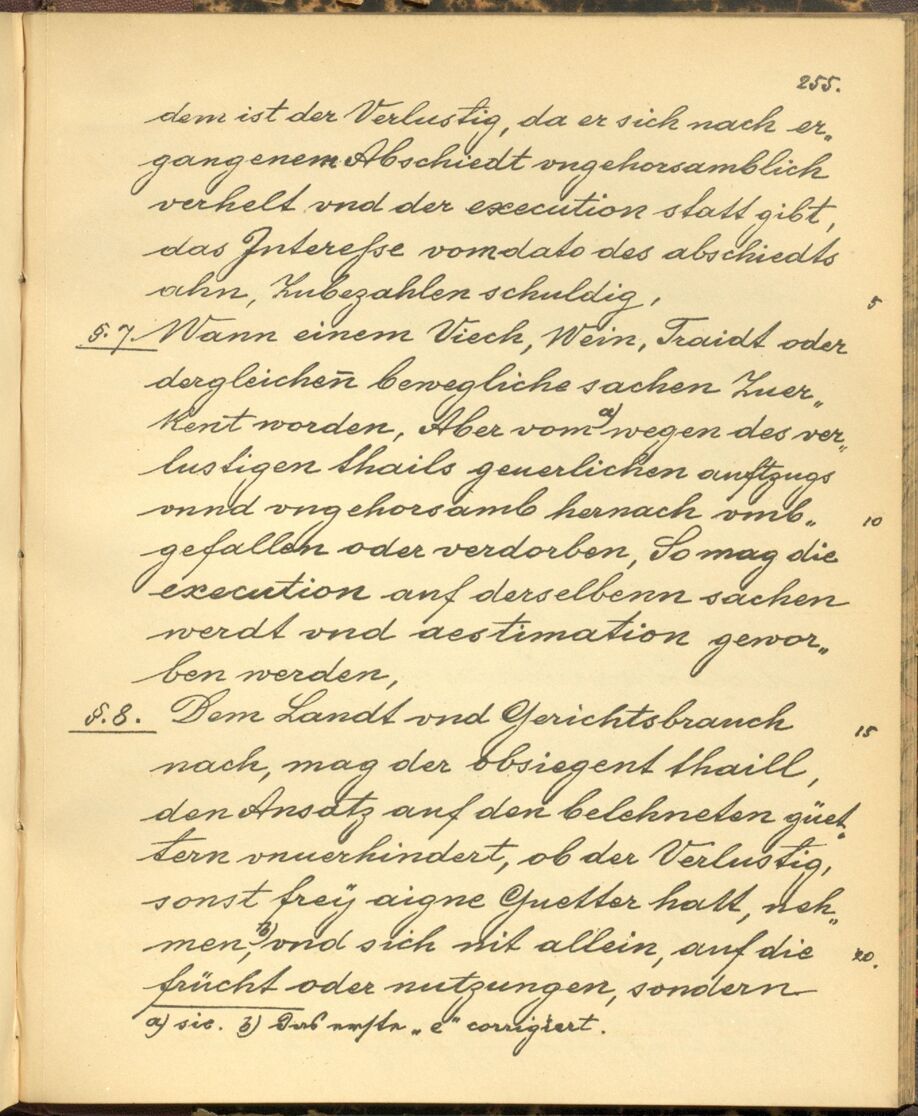 255.
dem ist der Verlustig, da er sich nach er„
gangenem Abschiedt vngehorsamblich
verhelt vnd der execution statt gibt,
das Interesse vom dato des abschiedts
ahn, Zubezahlen schuldig,
5
§. 7. Wann einem Viech, Wein, Traidt oder
dergleichen̄ bewegliche sachen Zuer„
kent worden, Aber vom a) wegen des ver„
lustigen thails geuerlichen auftzugs
vnnd vngehorsamb hernach vmb„
10
gefallen oder verdorben, So mag die
execution auf derselbenn sachen
werdt vnd aestimation gewor„
ben werden,
§. 8. Dem Landt vnd Gerichtsbrauch
15
nach, mag der obsiegent thaill,
den Ansatz auf den belehneten güet„
tern vnuerhindert, ob der Verlustig,
sonst freÿ aigne Guetter hatt, neh„
men, b) vnd sich nit allein, auf die
20.
frücht oder nutzungen, sondern
a) sic. b) Das erste „e" corrigiert.